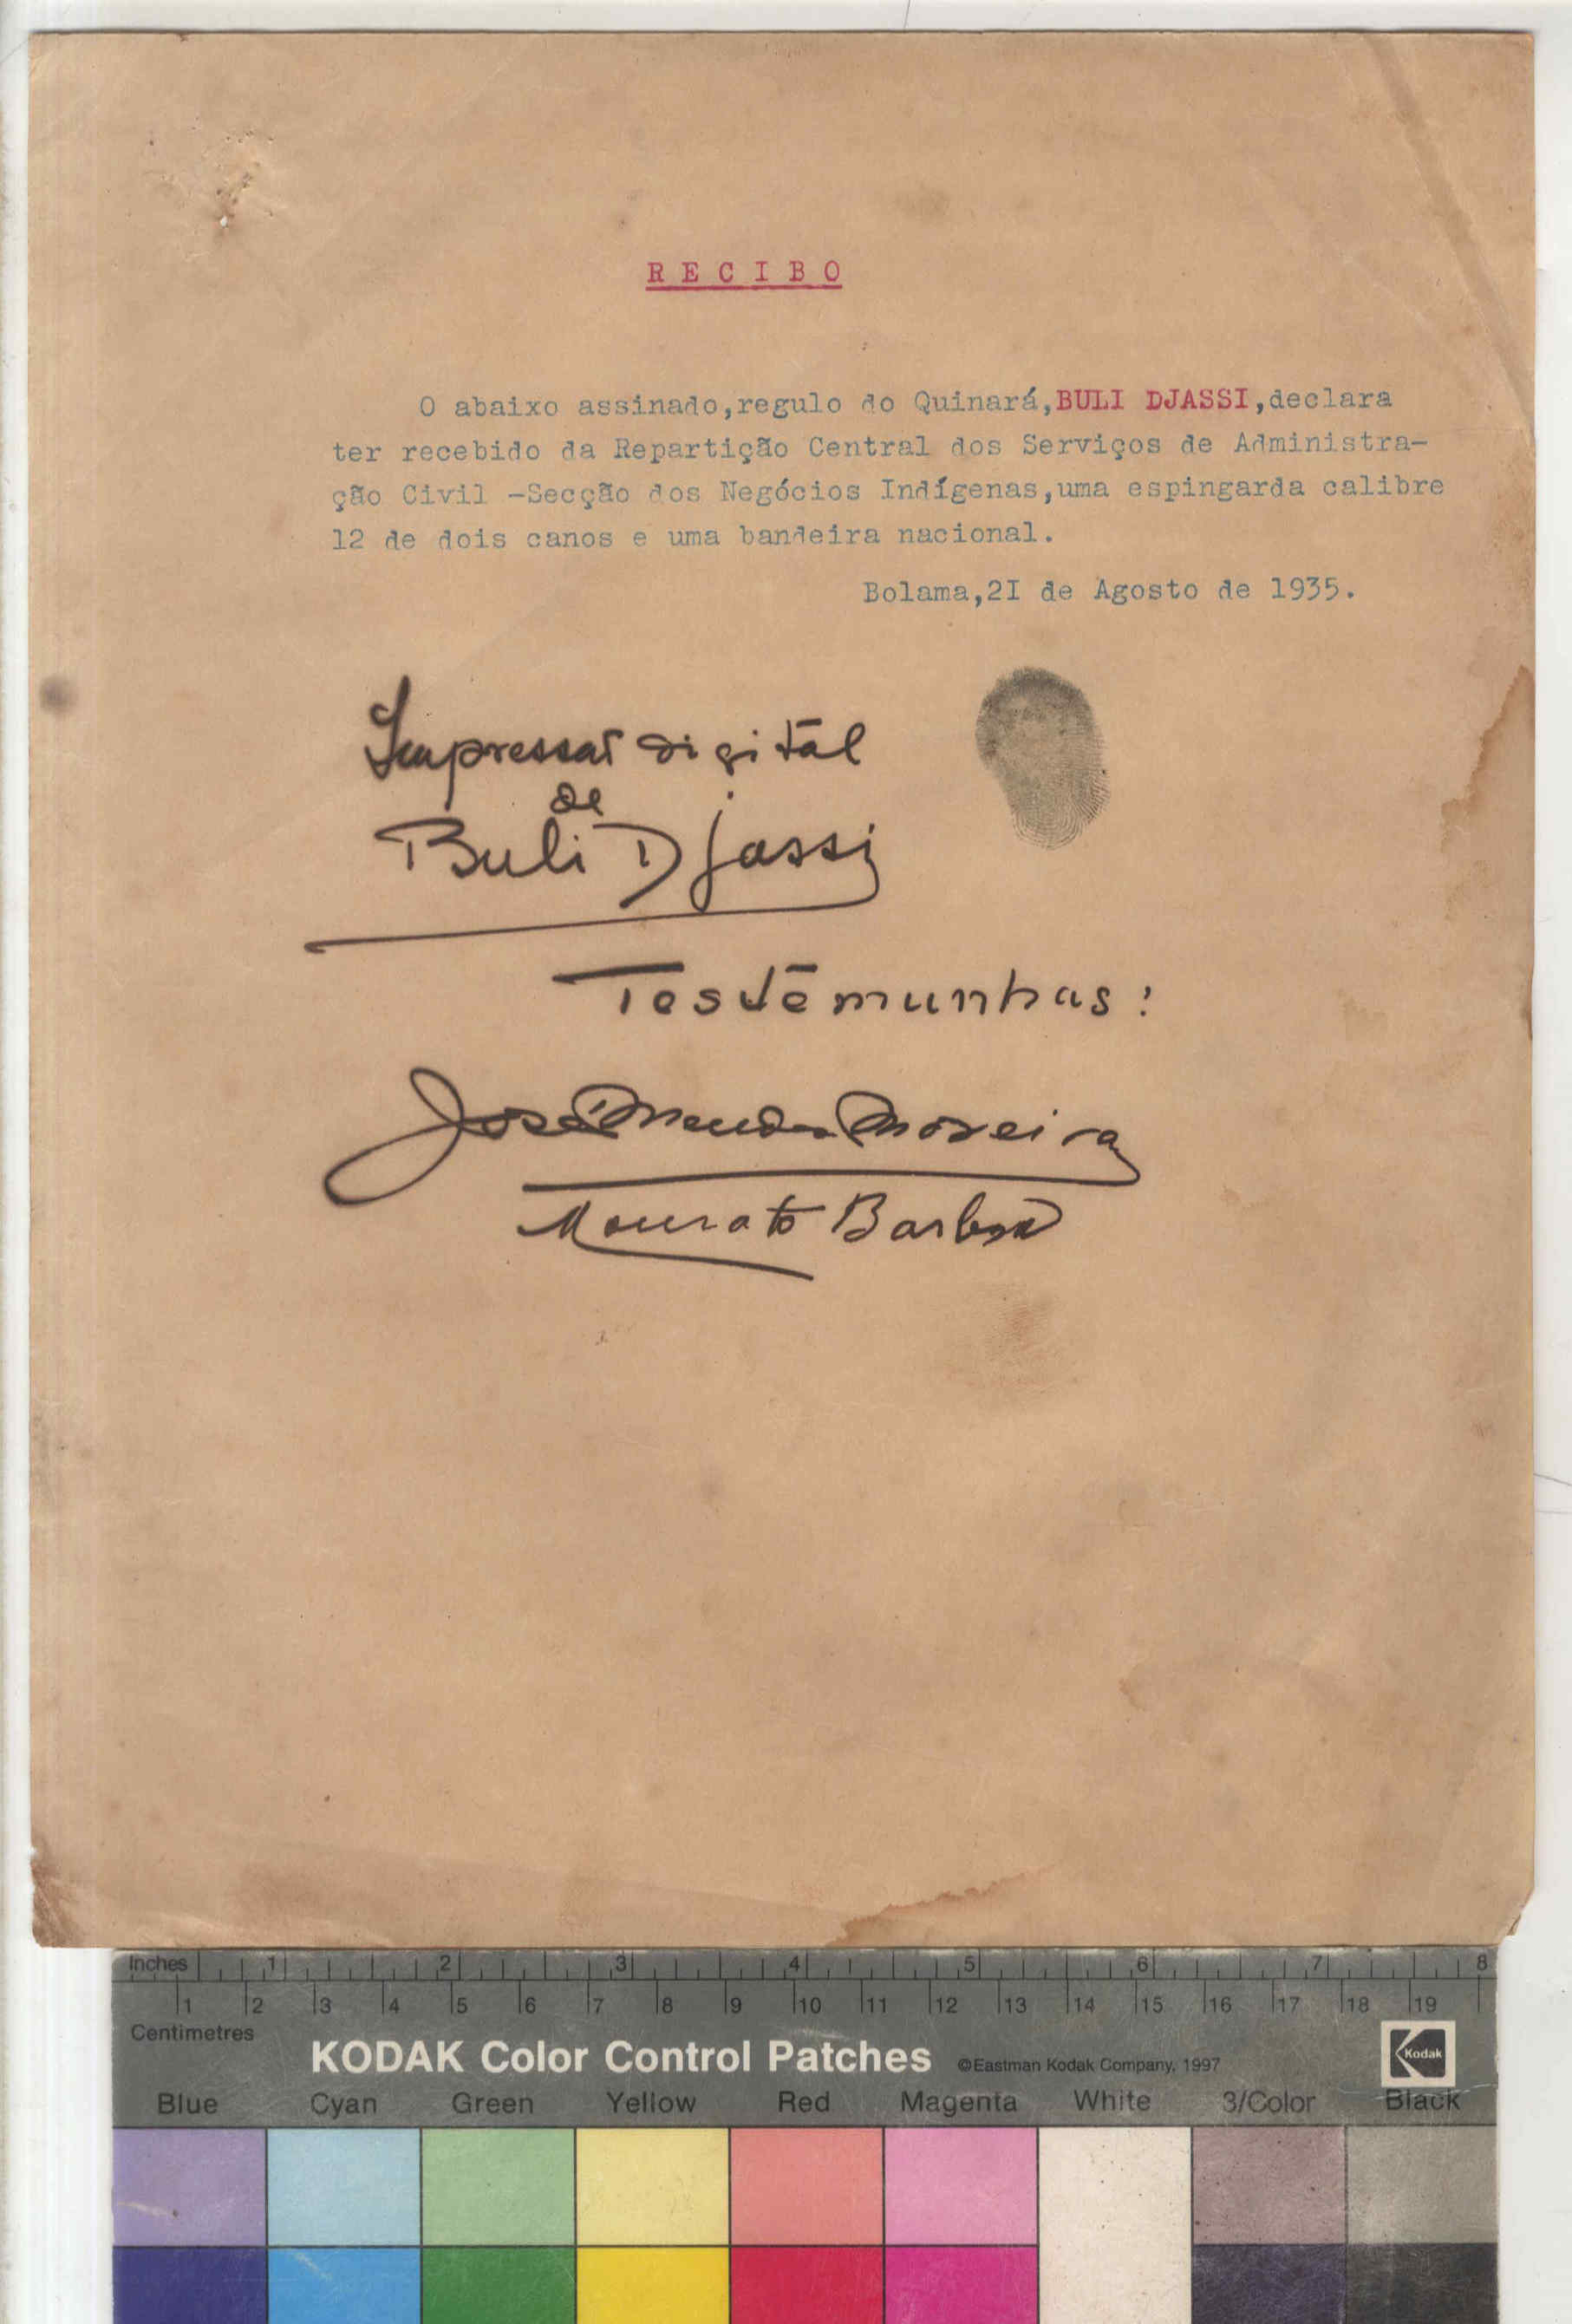 RECIBO
O abaixo assinado,regulo do Quinará,BULI DJASSI,declara
ter recebido da Repartição Central dos Serviços de Administra-
ção Civil -Secção dos Negócios Indígenas,uma espingarda calibre
12 de dois canos e uma bandeira nacional.
Bolama,2I de Agosto de 1935.
Impressaõ digital
de
Buli Djassi
Testemunhas:
José Mendes Moreira
Mourato Barbosa
Inches 1 2 3 4 5 6 7 8
1 2 3 4 5 6 7 8 9 10 11 12 13 14 15 16 17 18 19
Centimetres
KODAK Color Control Patches ©Eastman Kodak Company, 1997 Kodak
Blue Cyan Green Yellow Red Magenta White 3/Color Black